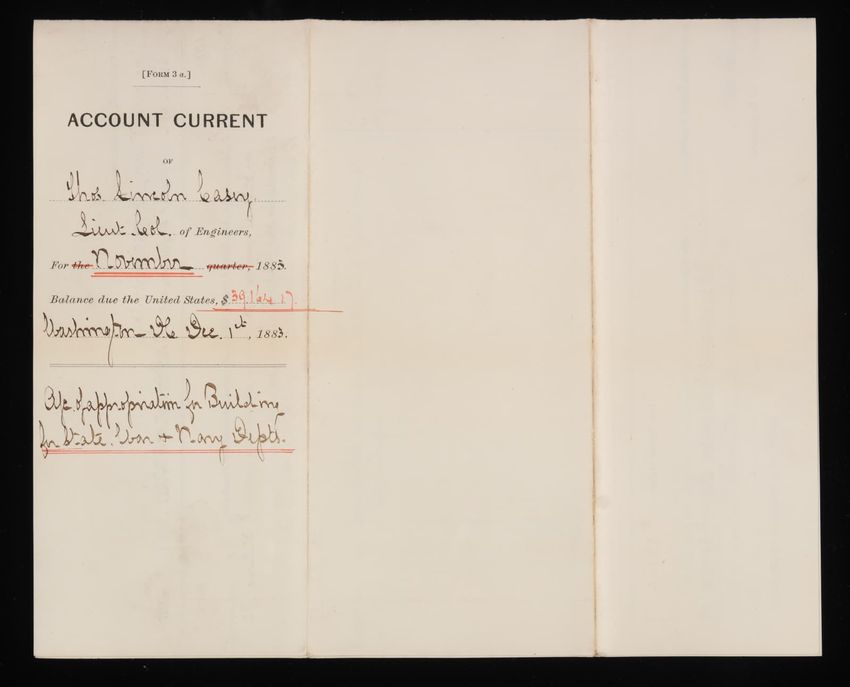 [FORM 3 a.]
ACCOUNT CURRENT
OF
Thos. Lincoln Casey
Lieut. Col. of Engineers,
For the November quarter, 1883.
Balance due the United States, $
Washington DC Dec. 1st, 1883.
A/c of appropriation for Building
for State, War & Navy Depts.